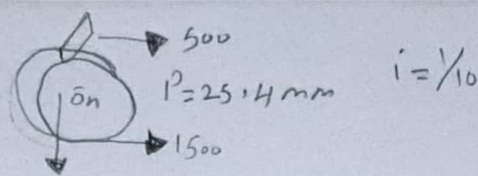 500
ön
P=25.4 mm
i = 1/10
1500